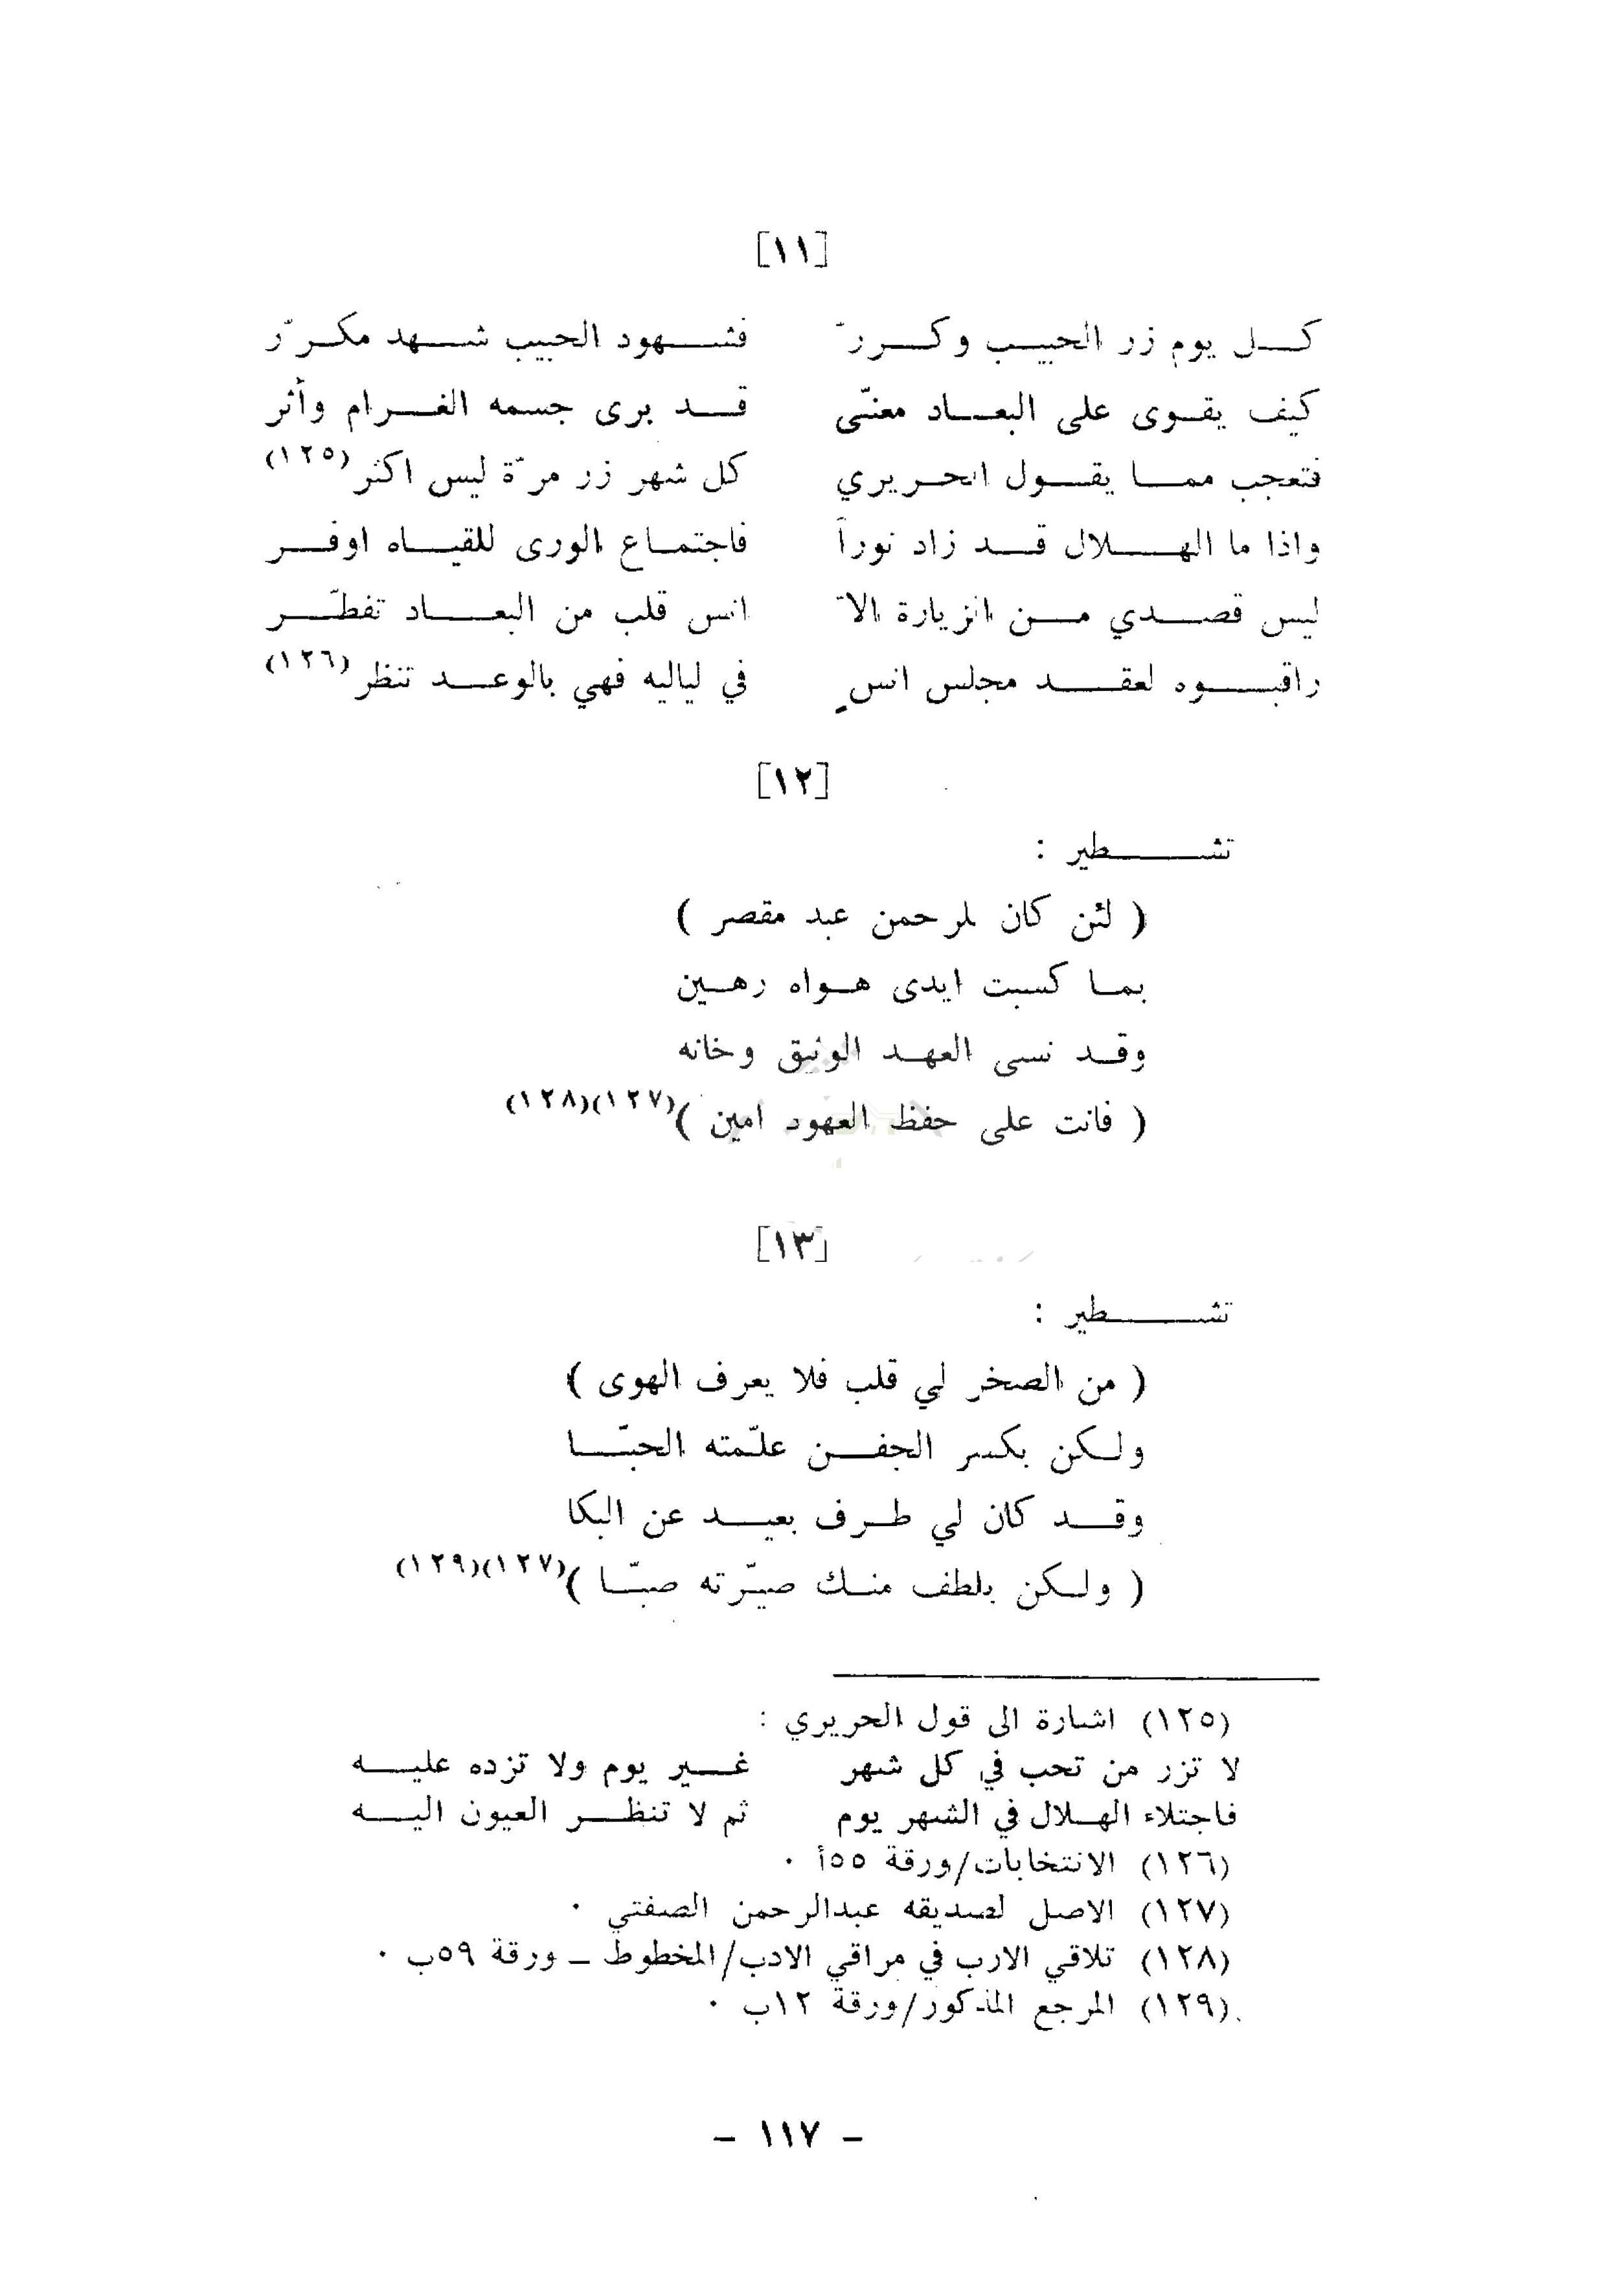 [١١]
كل يوم زر الحبيب وكررّ فشهود الحبيب شهد مكرّر
كيف يقوى على البعاد معنّى قد برى جسمه الغرام وأثر
فتعجب مما يقول الحريري كل شهر زر مرّة ليس اكثر (١٢٥)
واذا ما الهلال قد زاد نوراً فاجتماع الورى للقياه اوفر
ليس قصدي من الزيارة الاّ انس قلب من البعاد تفطّر
راقبوه لعقد مجلس انسٍ في لياليه فهي بالوعد تنظر (١٢٦)
[١٢]
تشطير :
( لئن كان للرحمن عبد مقصر )
بما كسبت ايدى هواه رهين
وقد نسى العهد الوثيق وخانه
( فانت على حفظ العهود امين ) (١٢٧)(١٢٨)
[١٣]
تشطير :
( من الصخر لي قلب فلا يعرف الهوى )
ولكن بكسر الجفن علّمته الحبّا
وقد كان لي طرف بعيد عن البكا
( ولكن بلطف منك صيّرته صبّا ) (١٢٧)(١٢٩)
(١٢٥) اشارة الى قول الحريري :
لا تزر من تحب في كل شهر غير يوم ولا تزده عليه
فاجتلاء الهلال في الشهر يوم ثم لا تنظر العيون اليه
(١٢٦) الانتخابات/ورقة ٥٥أ ٠
(١٢٧) الاصل لصديقه عبدالرحمن الصفتي ٠
(١٢٨) تلاقي الارب في مراقي الادب/المخطوط – ورقة ٥٩ب ٠
(١٢٩) المرجع المذكور/ورقة ١٢ب ٠
– ١١٧ –